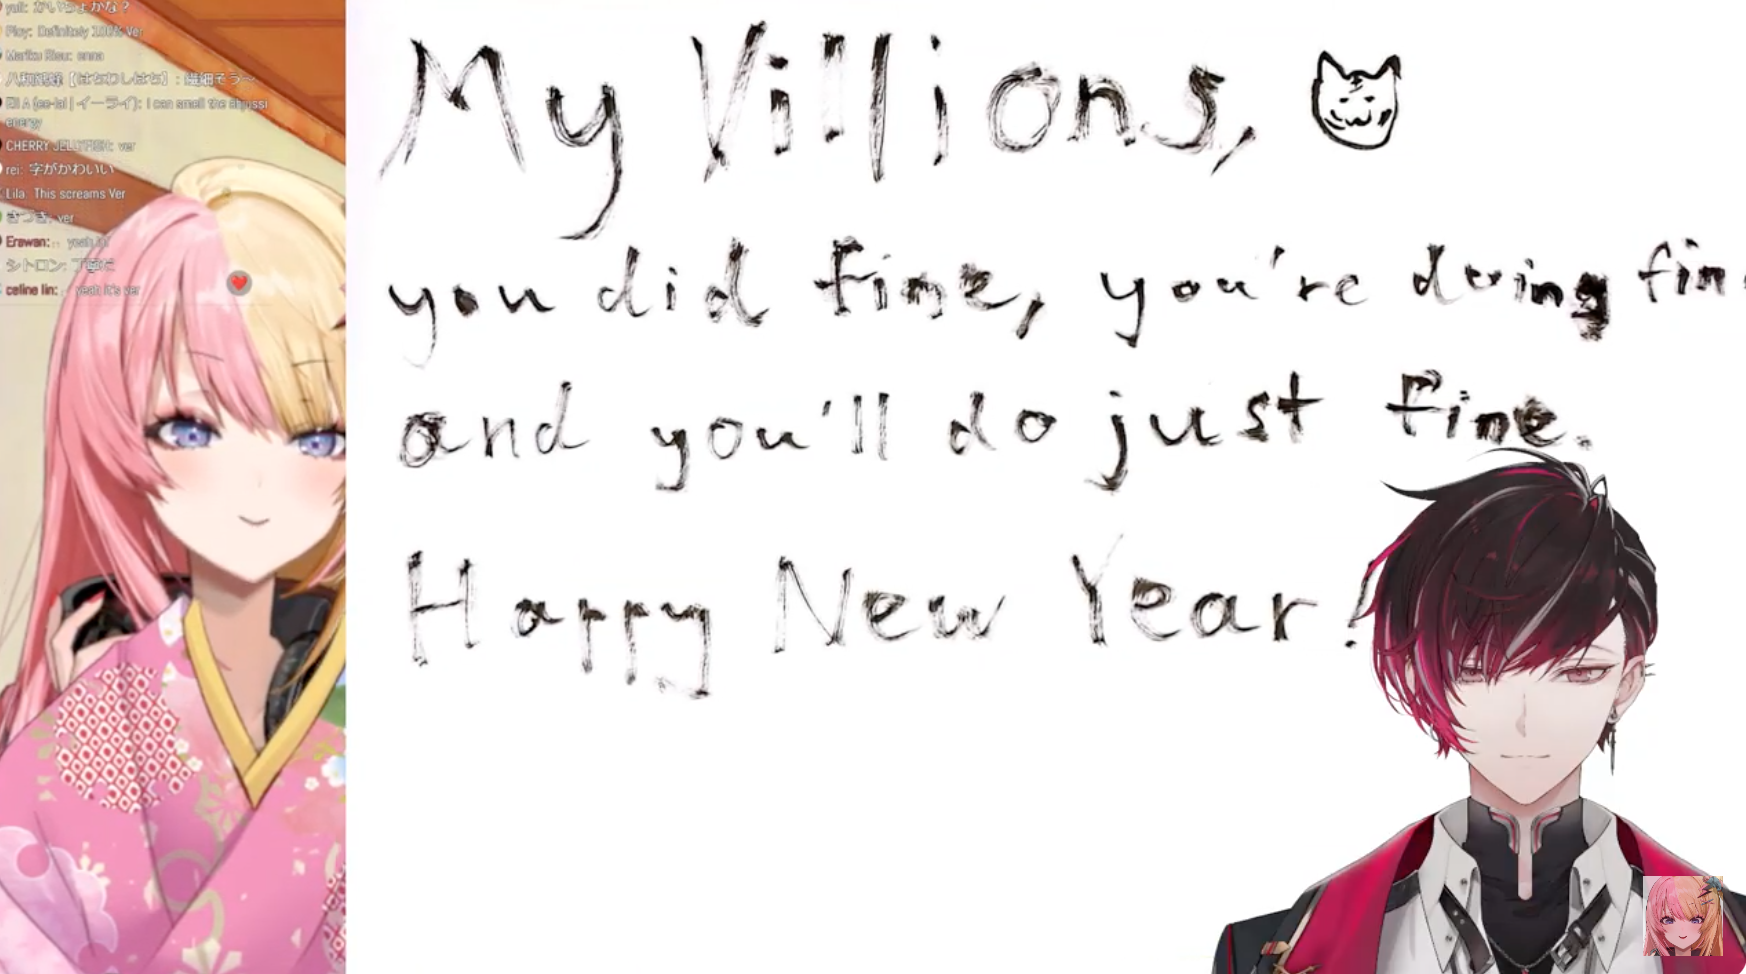 yuk: かいちょかな?
Ploy: Definitely 100% Ver
Mariku Risu: enna
【はちわしはち】: 繊細そう〜
(ee-lai | イーライ): I can smell the
energy
CHERRY JELLYFISH: ver
rei: 字がかわいい
Lila: This screams Ver
きづき: ver
Erawan: yeah
シトロン: 丁寧だ
celine lin: yeah it's ver
My Villions,
you did fine, you're doing fin
and you'll do just fine.
Happy New Year!